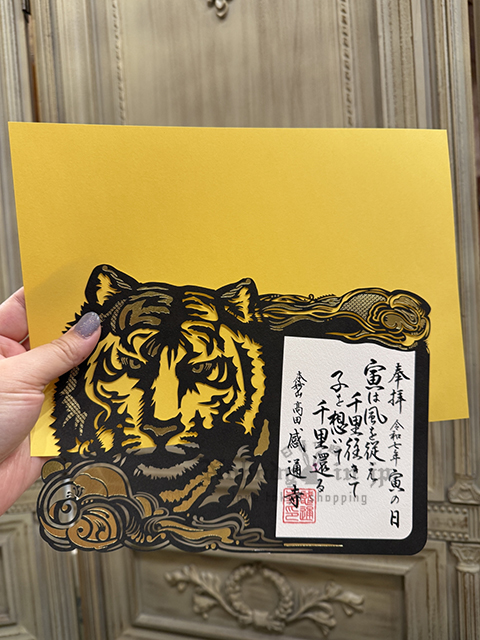 奉拝 令和七年 寅の日
寅は風を従え
千里往きて
子を想いて
千里還る
高田 感通寺